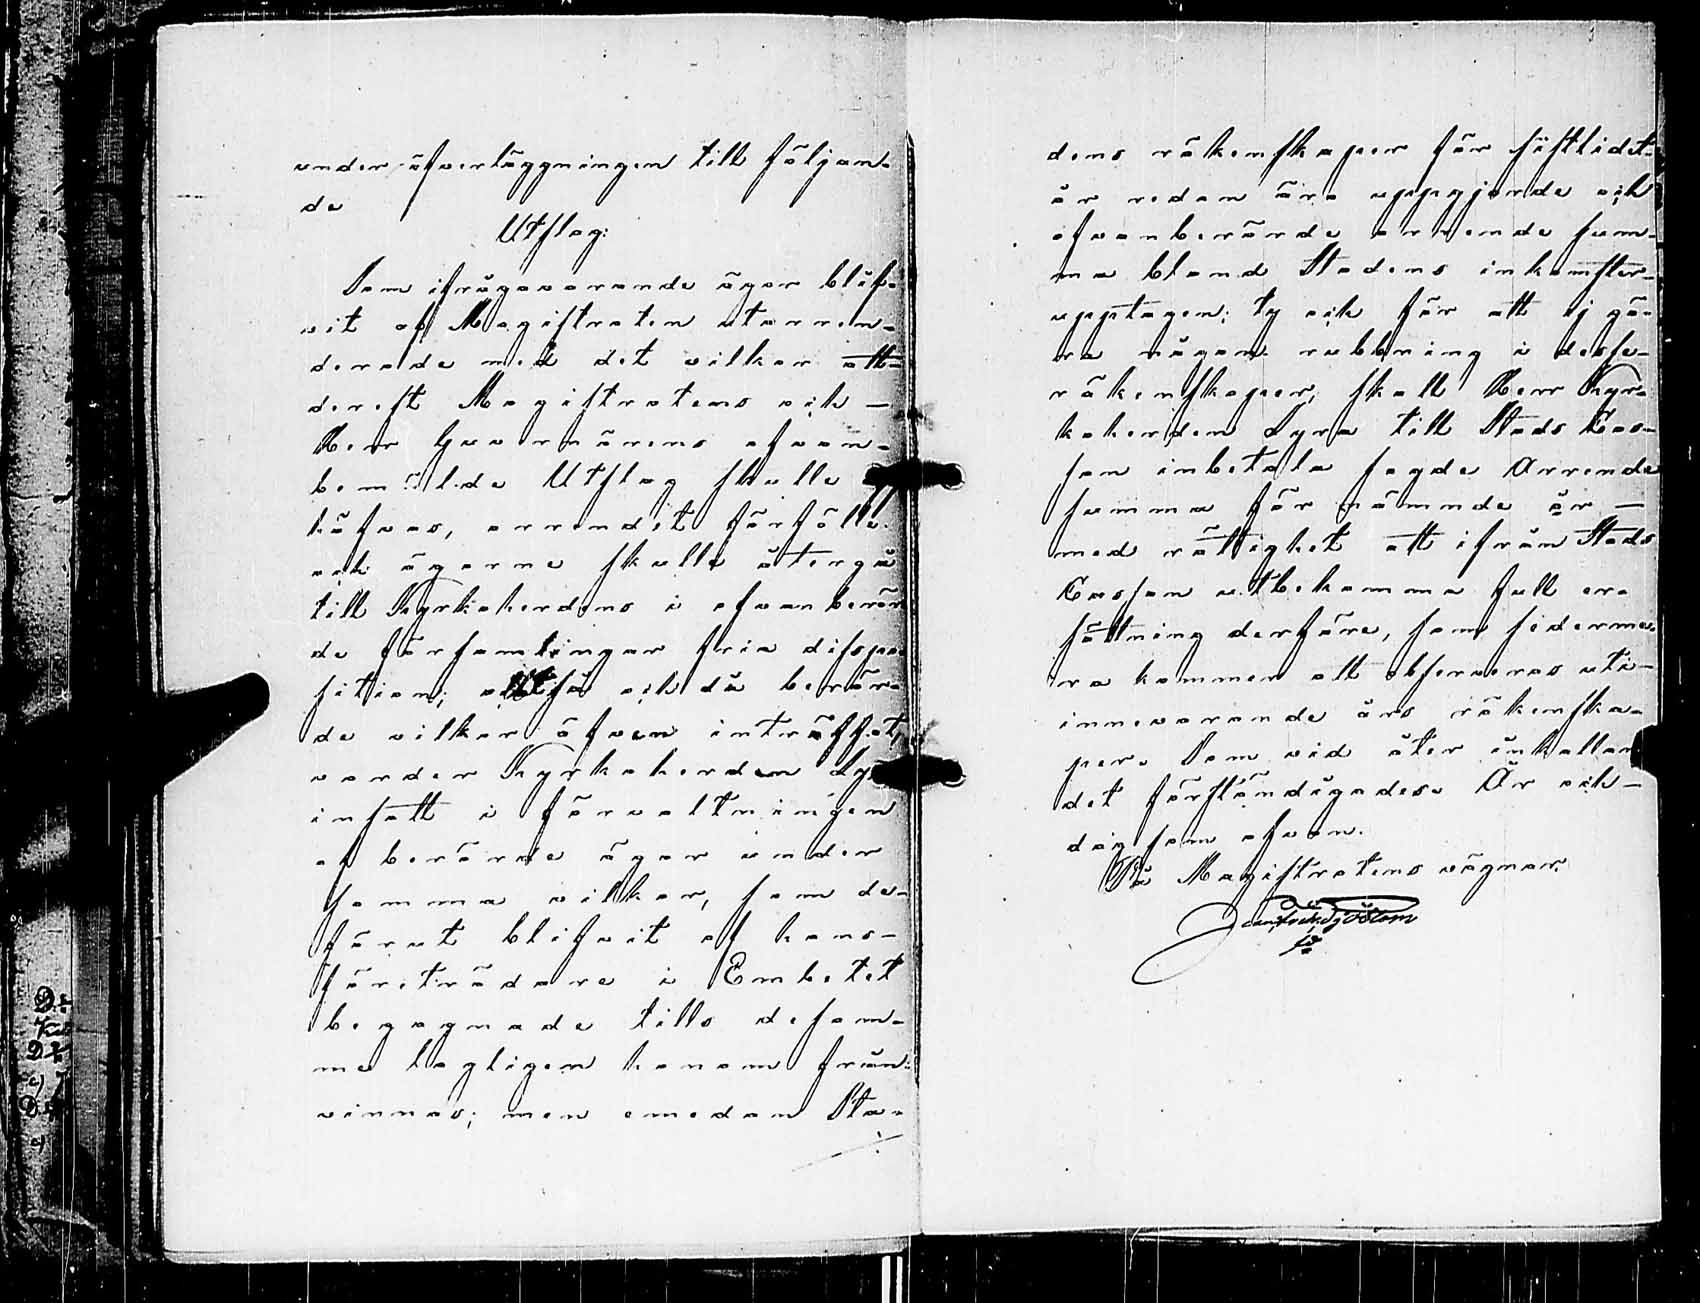 under öfverläggningen till följan-
de
Utslag:
Som ifrågavarande ägor blif-
vit af Magistraten utarren-
derade med det vilkor att
derest Magistratens och —
Herr Guvernörens ofvan-
bemälde Utslag skulle
häfvas, arrendet förfölle
och ägorne skulle återgå
till Kyrkoherdens i ofvanberör
de församlingar fria dispo-
sition; alltså och då berör-
de vilkor äfven inträffat,
varder Kyrkoherden
insatt i förvaltningen
af berörde ägor under
samma vilkor, som de-
förut blifvit af hans-
företrädare i Embetet
begagnade tills desam-
me lagligen honom från-
vinnas; men emedan Sta-
dens räkenskaper för sistlidet
år redan äro uppgjorde och
ofvanberörde arrende sum-
ma bland Stadens inkomster
upptagen; ty och för att ej gö-
ra någon rubbning i desse-
räkenskaper, skall Herr Kyr-
koherden Dyra till Stads Cas-
san inbetala sagde Arrende
summa för nämnde år —
med rättighet att ifrån Stads
Cassan utbekomma full er-
sättning derföre, som sederme-
ra kommer att observeras uti-
innevarande års räkenska-
per. Som vid åter inkallan
det förständigades. År och -
dag som ofvan.
På Magistratens vägnar.